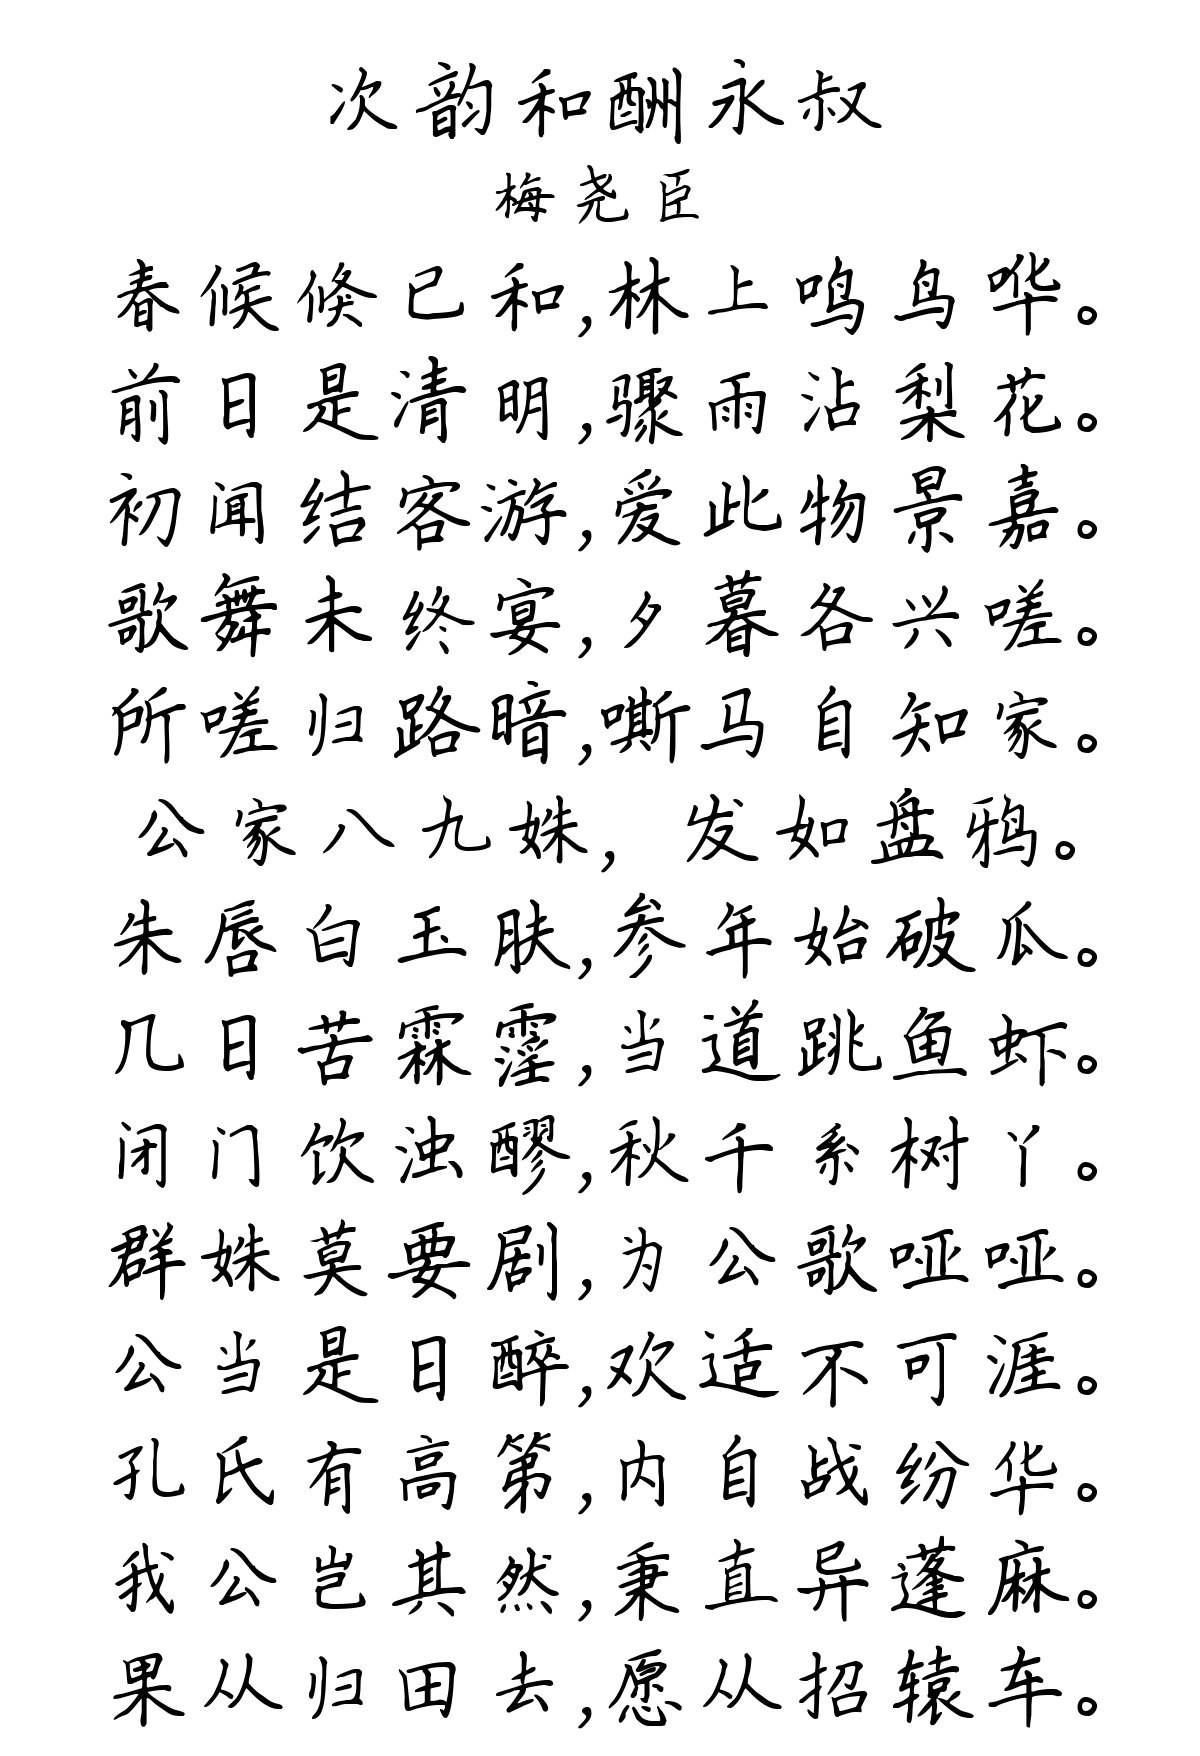 次韵和酬永叔
梅尧臣
春候倏已和,林上鸣鸟哗。
前日是清明,骤雨沾梨花。
初闻结客游,爱此物景嘉。
歌舞未终宴,夕暮各兴嗟。
所嗟归路暗,嘶马自知家。
公家八九姝,发如盘鸦。
朱唇白玉肤,参年始破瓜。
几日苦霖霪,当道跳鱼虾。
闭门饮浊醪,秋千系树丫。
群姝莫要剧,为公歌哑哑。
公当是日醉,欢适不可涯。
孔氏有高第,内自战纷华。
我公岂其然,秉直异蓬麻。
果从归田去,愿从招辕车。